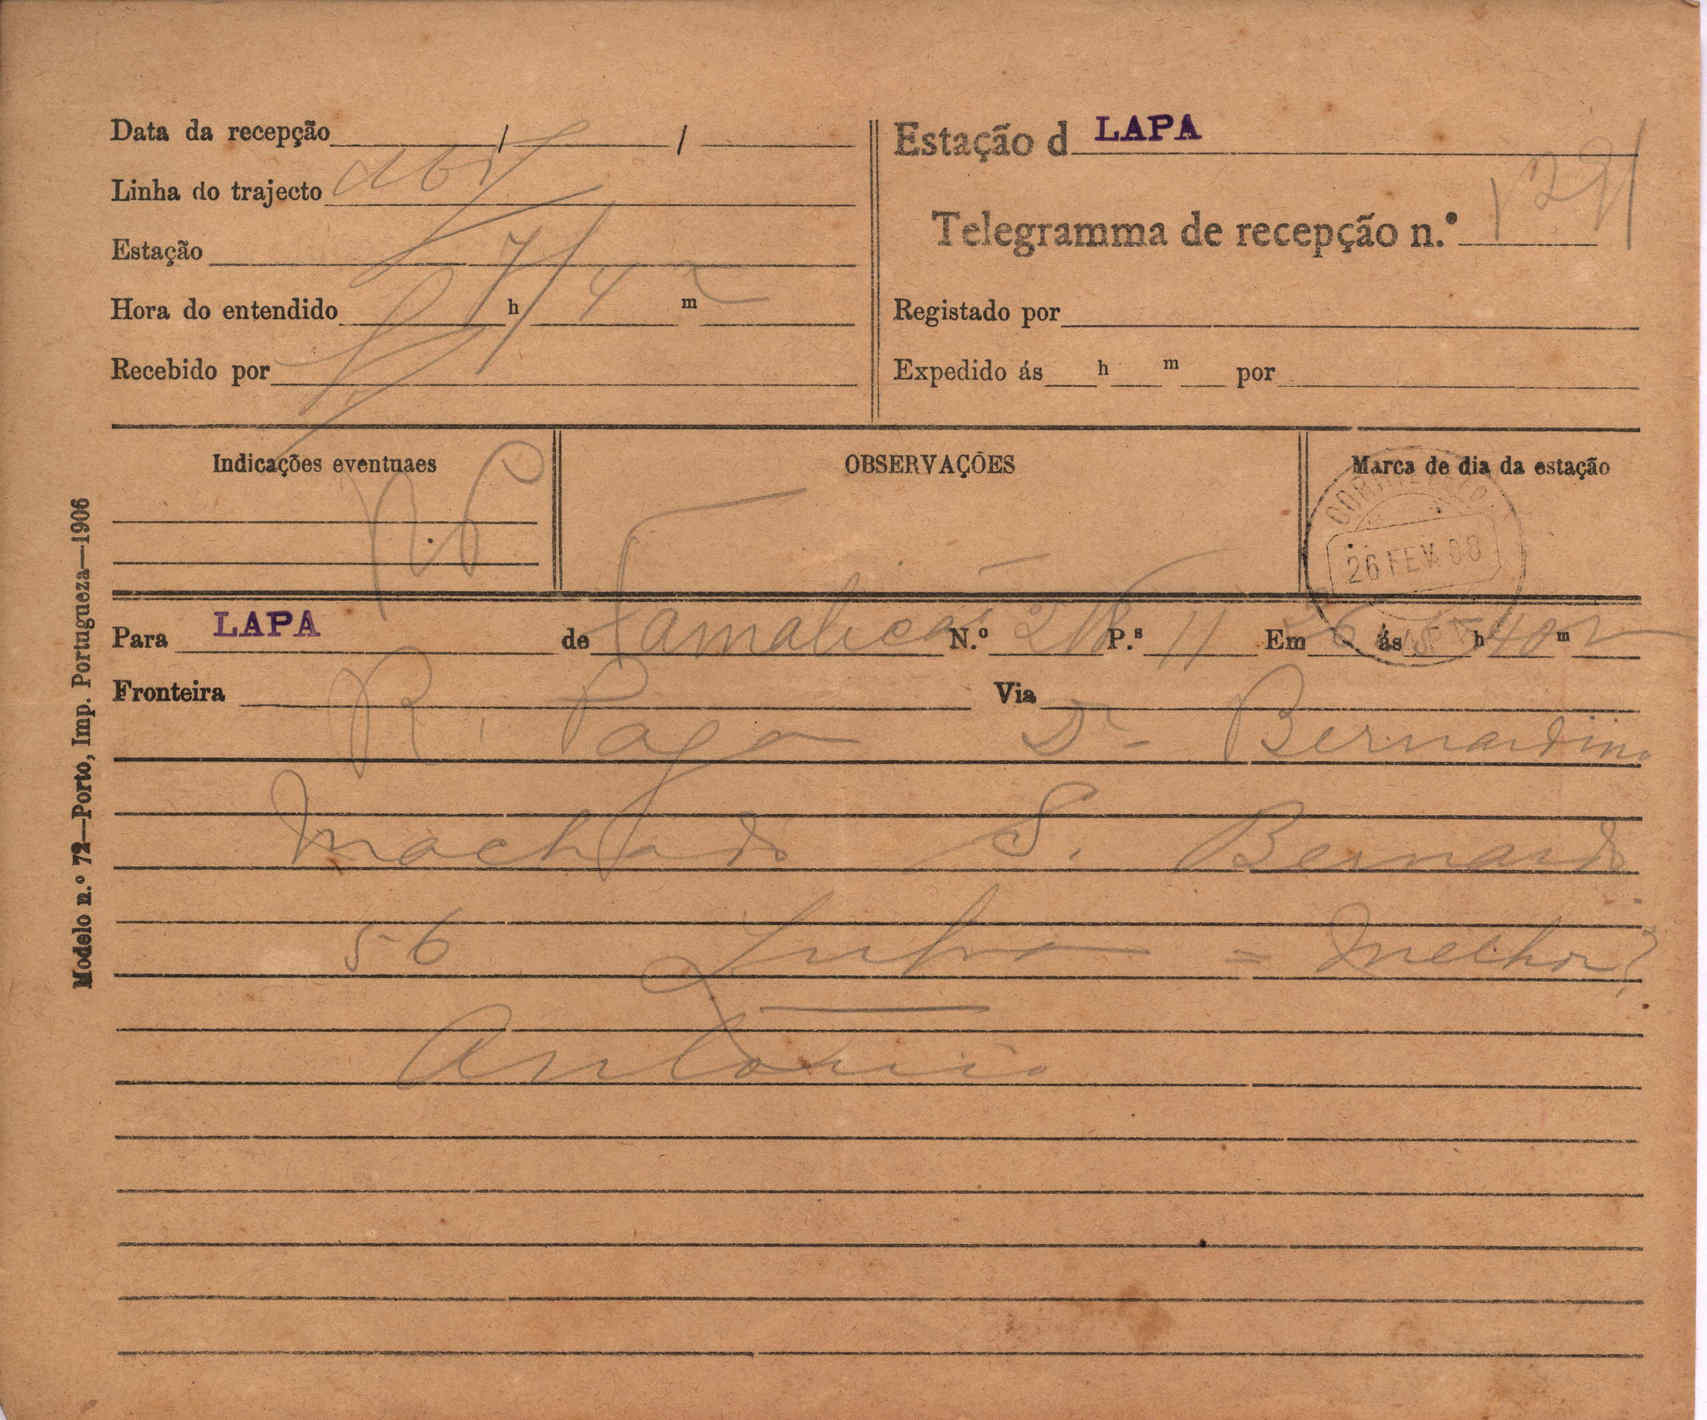 Data da recepção / /
Linha do trajecto
Estação
Hora do entendido 7 h 42 m
Recebido por
Estação d LAPA
Telegramma de recepção n.º
Registado por
Expedido ás h m por
Indicações eventuaes
OBSERVAÇÕES
Marca de dia da estação
26 FEV. 08
Para LAPA de Famalicão N.º P.s 11 Em 26 ás h 40 m
Fronteira Via
R. Paga Dr Bernardino
Machado S. Bernardo
56 Lxbôa = Melhor?
Antonio
Modelo n.º 72—Porto, Imp. Portugueza—1906